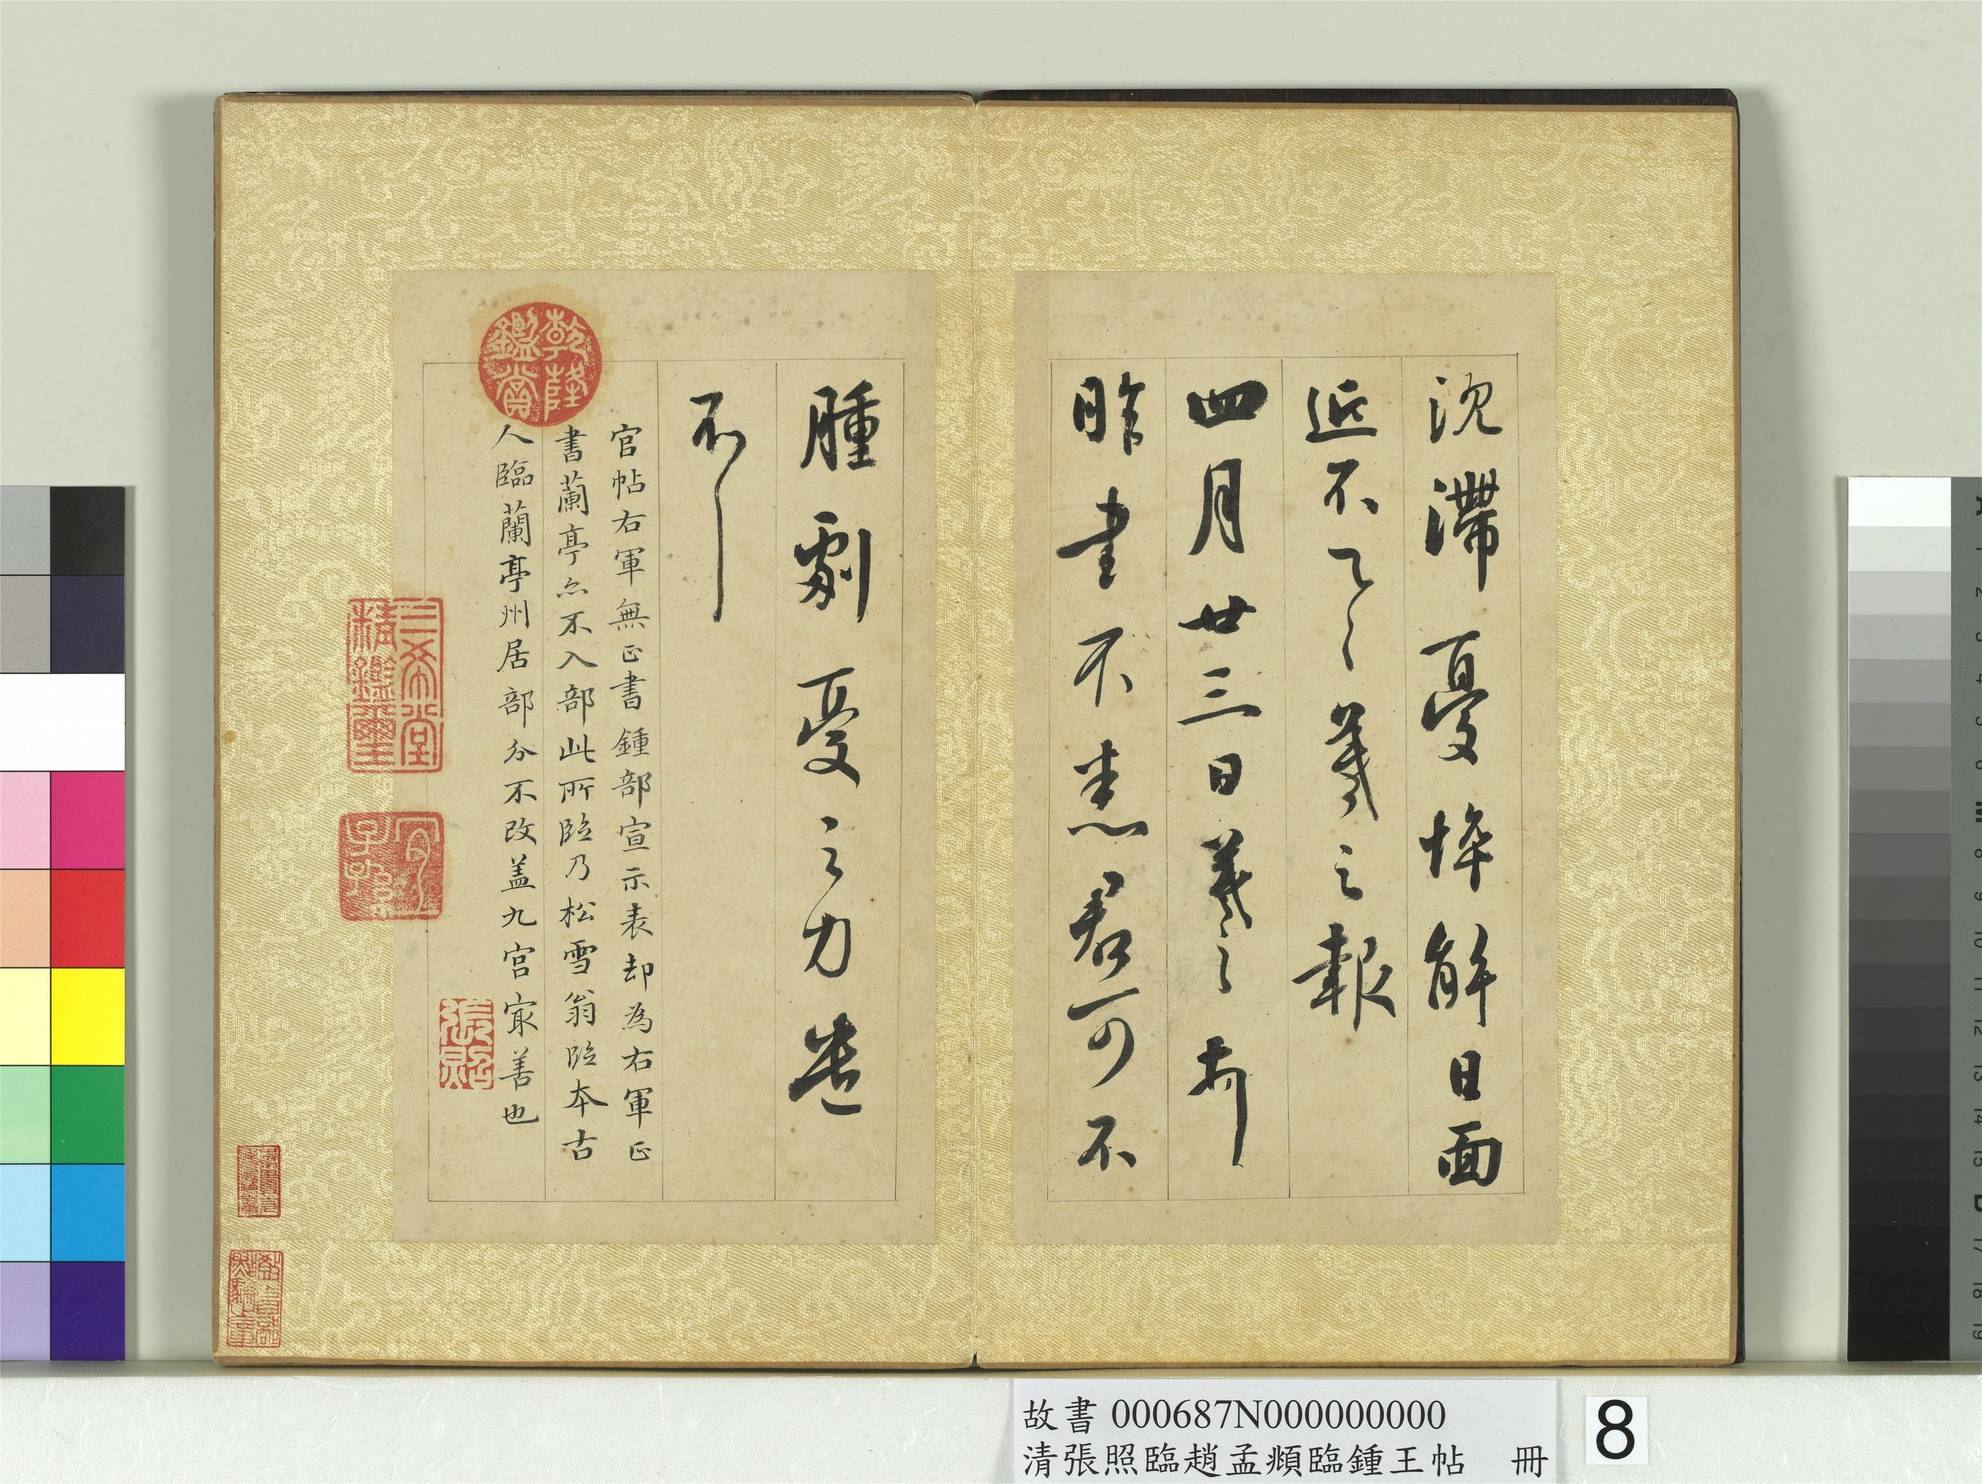 沈滯憂悴解日面
近不一〻羲之報
四月廿三日羲之頓
昨書不悉君可不
腫劇憂之力遣
不一
官帖右軍無正書鍾部宣示表却為右軍正
書蘭亭亦不入部此所臨乃松雪翁臨本古
人臨蘭亭州居部分不改盖九宮㝡善也
乾隆
鑑賞
三希堂
精鑑璽
宜
子孫
張照
故書 000687N000000000
清張照臨趙孟頫臨鍾王帖 冊
8